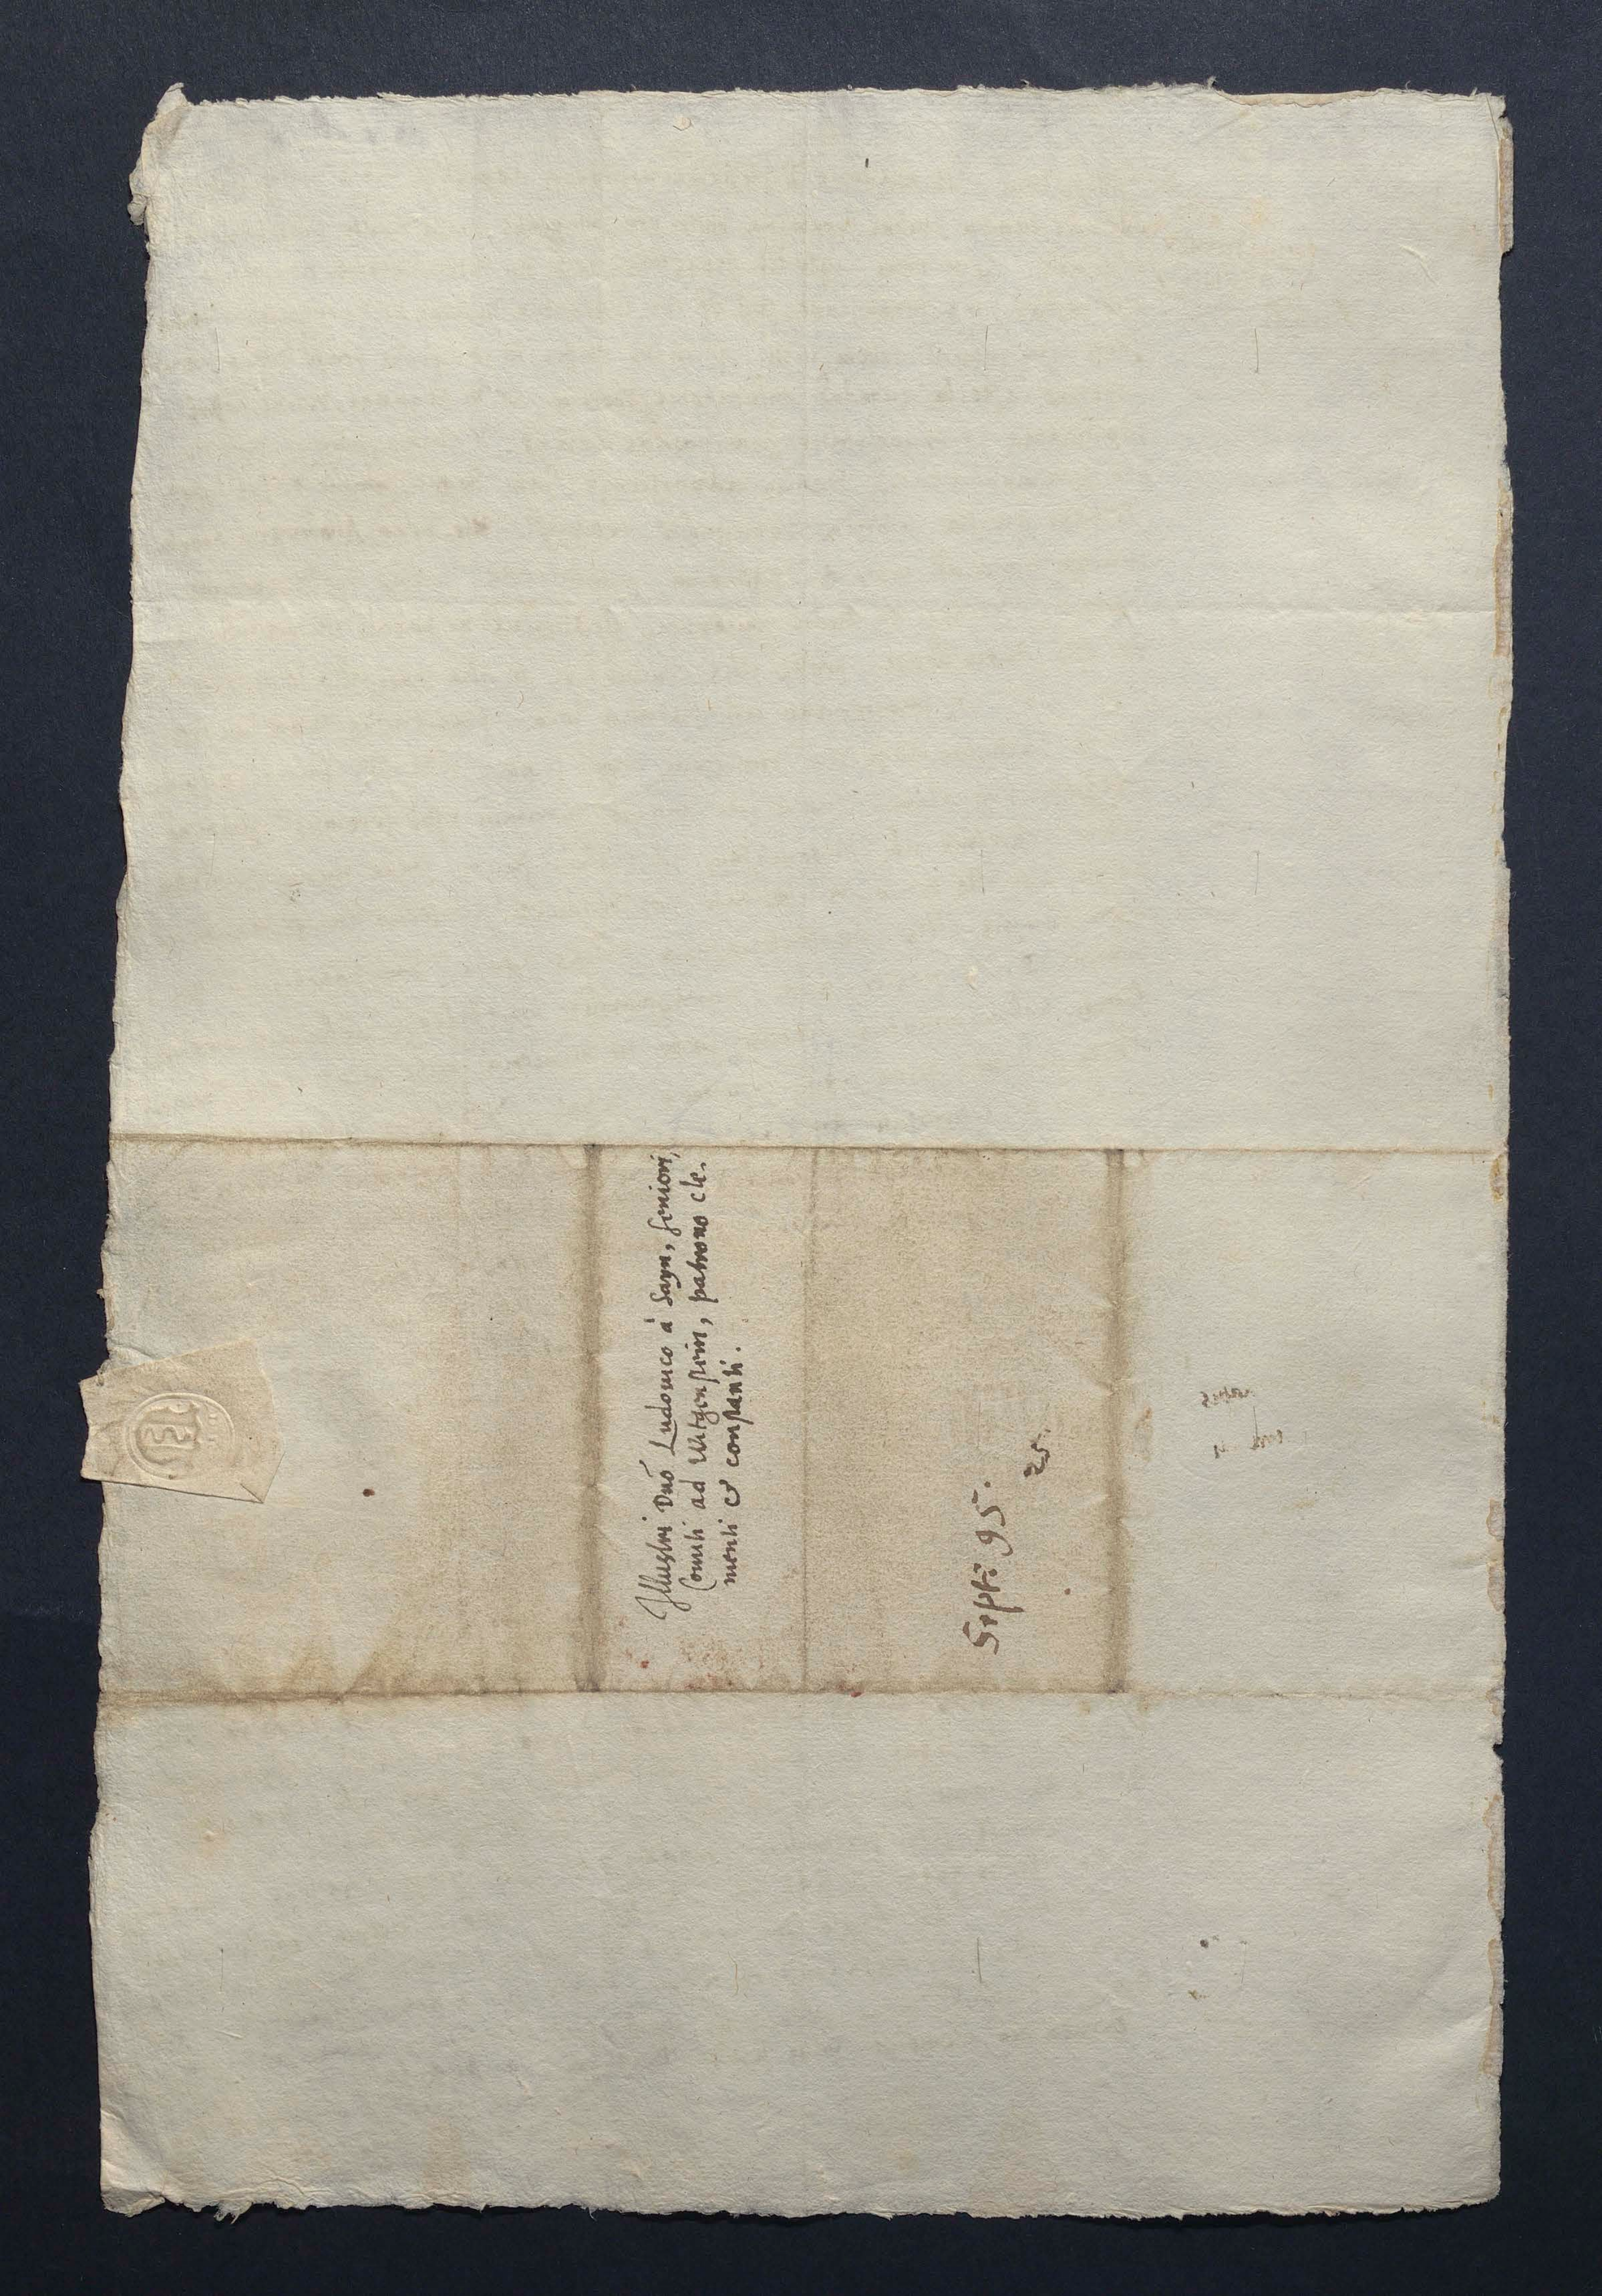 Illustri Dnō Ludovico à Sayn, seniori,
Comiti ad Witgenstein, patrono cle,
menti & constanti.
Sept: 95.
25.